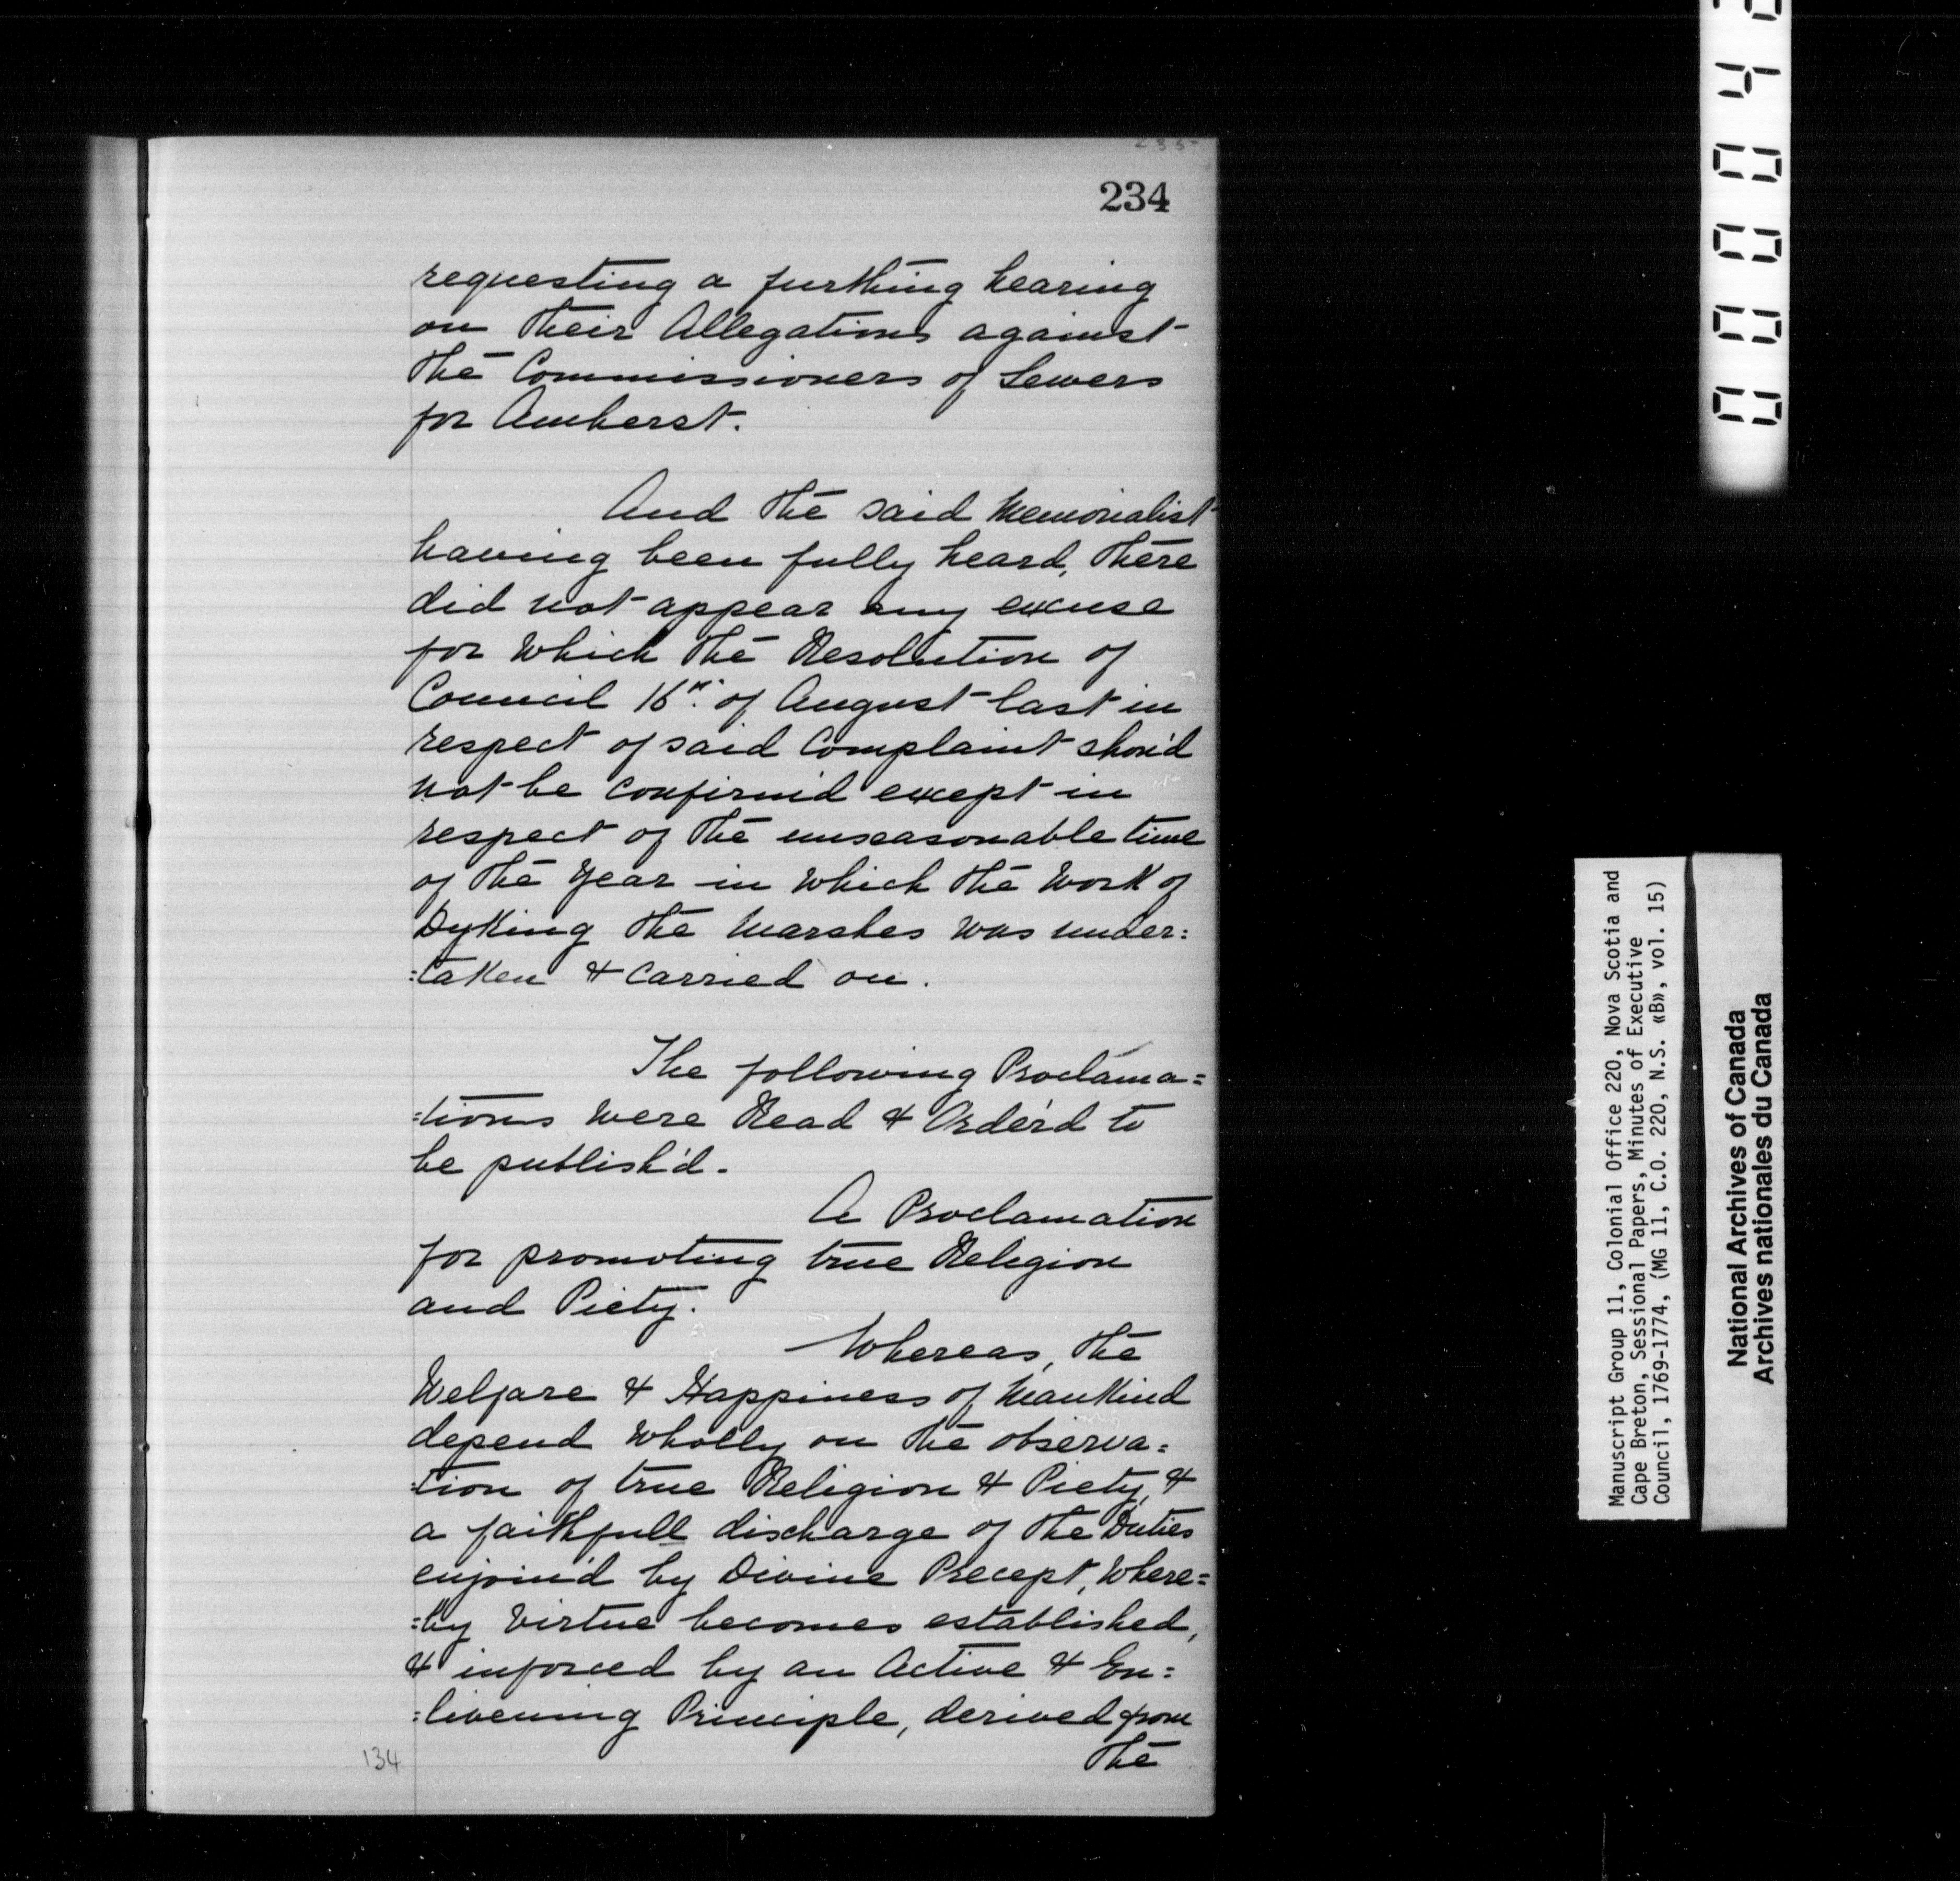 234
requesting a furthing hearing
on their Allegations against
the Commissioners of Sewers
for Amherst.
And the said Memorialist
having been fully heard, there
did not appear any excuse
for which the Resolution of
Council 16th. of August last in
respect of said Complaint shou'd
not be confirm'd except in
respect of the unseasonable time
of the Year in which the Work of
Dyking the Marshes was under=
=taken & carried on.
The following Proclama=
=tions were Read & Order'd to
be publish'd.
A Proclamation
for promoting true Religion
and Piety.
Whereas, the
Welfare & Happiness of Mankind
depend wholly on the observa=
=tion of true Religion & Piety, &
a faithfull discharge of the Duties
enjoin'd by Divine Precept, where=
=by Virtue becomes established,
& inforced by an Active & En=
=livening Principle, derived from
the
134
Manuscript Group 11, Colonial Office 220, Nova Scotia and
Cape Breton, Sessional Papers, Minutes of Executive
Council, 1769-1774, (MG 11, C.O. 220, N.S. «B», vol. 15)
National Archives of Canada
Archives nationales du Canada